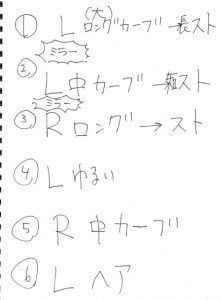 ① L (大)ロングカーブ→長スト
ミラー
②, L 中カーブ→短スト
ミラー
③, R ロング→スト
④, L ゆるい
⑤ R 中カーブ
⑥ L ヘア